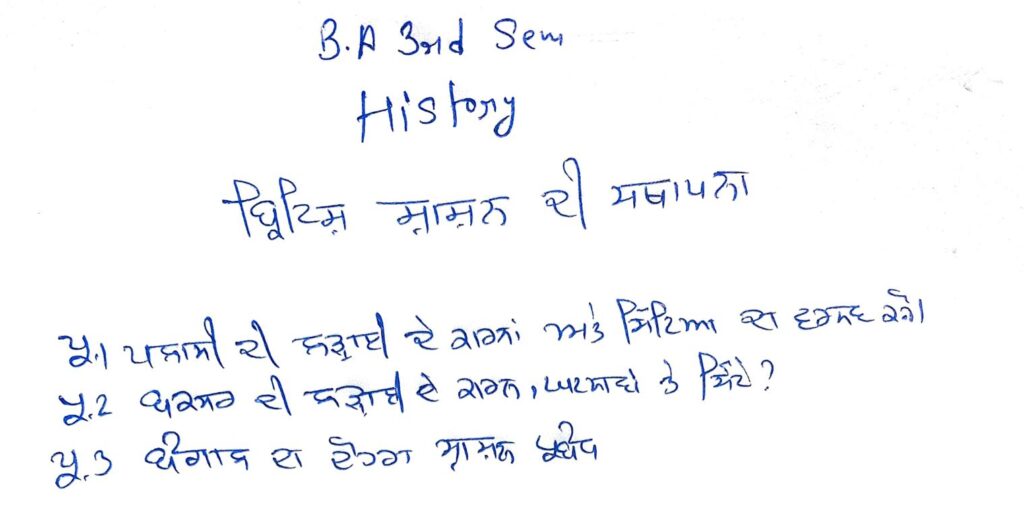 B.A 3rd Sem
History
ਬ੍ਰਿਟਿਸ਼ ਸ਼ਾਸ਼ਨ ਦੀ ਸਥਾਪਨਾ
ਪ੍ਰ.1 ਪਲਾਸੀ ਦੀ ਲੜਾਈ ਦੇ ਕਾਰਨਾਂ ਅਤੇ ਸਿੱਟਿਆ ਦਾ ਵਰਨਣ ਕਰੋ।
ਪ੍ਰ.2 ਬਕਸਰ ਦੀ ਲੜਾਈ ਦੇ ਕਾਰਨ, ਘਟਨਾਵਾਂ ਤੇ ਸਿੱਟੇ?
ਪ੍ਰ.3 ਬੰਗਾਲ ਦਾ ਦੋਹਰਾ ਸ਼ਾਸ਼ਨ ਪ੍ਰਬੰਧ